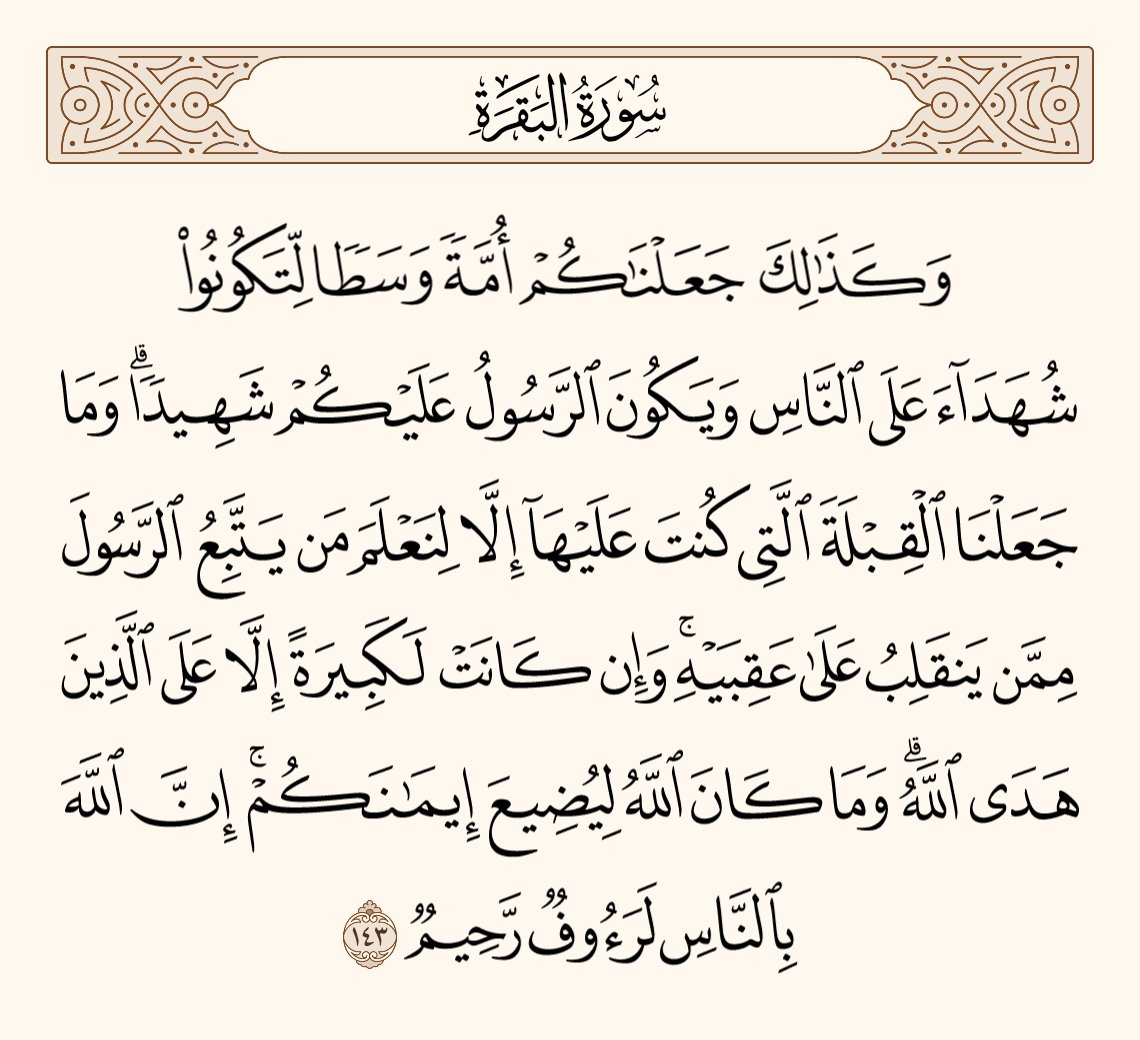 سُورَةُ البَقَرَةِ
وَكَذَٰلِكَ جَعَلْنَٰكُمْ أُمَّةً وَسَطًا لِّتَكُونُوا۟
شُهَدَآءَ عَلَى ٱلنَّاسِ وَيَكُونَ ٱلرَّسُولُ عَلَيْكُمْ شَهِيدًا ۗ وَمَا
جَعَلْنَا ٱلْقِبْلَةَ ٱلَّتِى كُنتَ عَلَيْهَآ إِلَّا لِنَعْلَمَ مَن يَتَّبِعُ ٱلرَّسُولَ
مِمَّن يَنقَلِبُ عَلَىٰ عَقِبَيْهِ ۚ وَإِن كَانَتْ لَكَبِيرَةً إِلَّا عَلَى ٱلَّذِينَ
هَدَى ٱللَّهُ ۗ وَمَا كَانَ ٱللَّهُ لِيُضِيعَ إِيمَٰنَكُمْ ۚ إِنَّ ٱللَّهَ
بِٱلنَّاسِ لَرَءُوفٌ رَّحِيمٌ ١٤٣